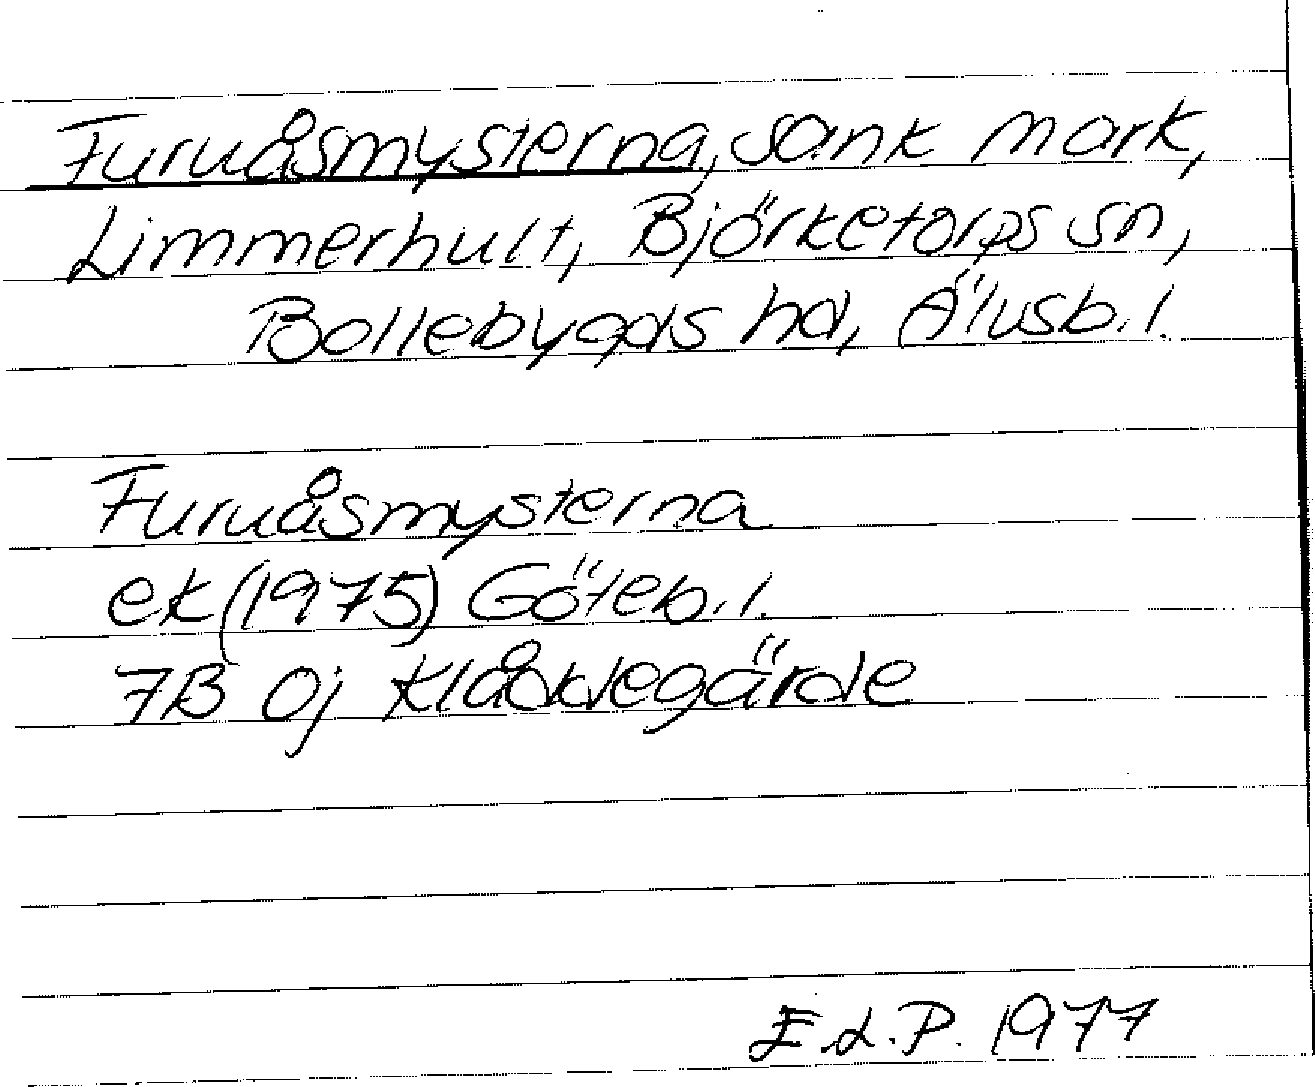 Furuåsmysterna, sank mark,
Limmerhult, Björketorps sn,
Bollebygds hd, Älvsb. l.
Furuåsmysterna
ek (1975) Göteb. l.
7B 0j Klåddegärde
E.L.P. 1977